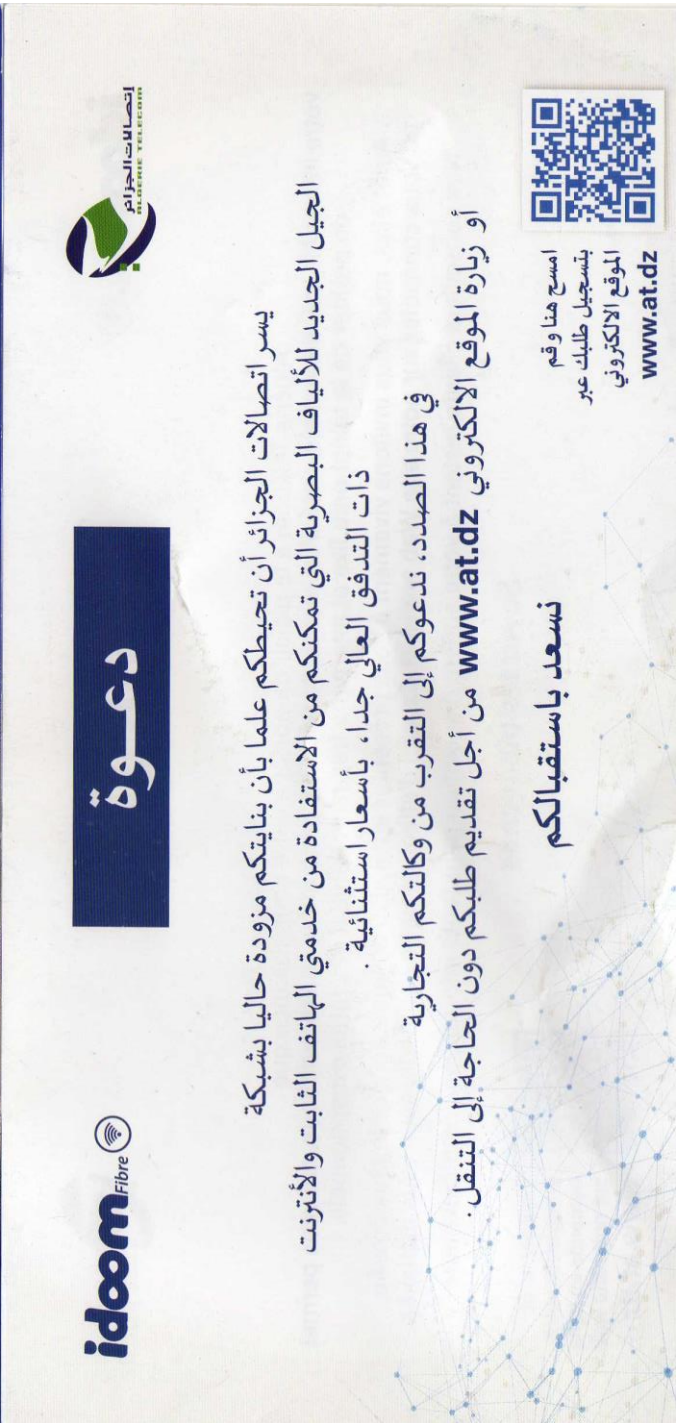 idoom Fibre
إتصالات الجزائر
ALGERIE TELECOM
دعـوة
يسر اتصالات الجزائر أن تحيطكم علما بأن بنايتكم مزودة حاليا بشبكة
الجيل الجديد للألياف البصرية التي تمكنكم من الاستفادة من خدمتي الهاتف الثابت والأنترنت
ذات التدفق العالي جدا، بأسعار استثنائية .
في هذا الصدد، ندعوكم إلى التقرب من وكالتكم التجارية
أو زيارة الموقع الالكتروني www.at.dz من أجل تقديم طلبكم دون الحاجة إلى التنقل .
نسعد باستقبالكم
امسح هنا و قم
بتسجيل طلبك عبر
الموقع الالكتروني
www.at.dz